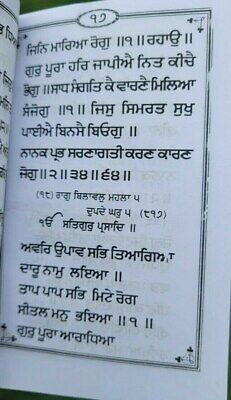 ੧੭
ਜਿਨਿ ਮਾਰਿਆ ਰੋਗੁ ॥੧॥ ਰਹਾਉ॥
ਗੁਰੁ ਪੂਰਾ ਹਰਿ ਜਾਪੀਐ ਨਿਤ ਕੀਚੈ
ਭੋਗੁ॥ਸਾਧ ਸੰਗਤਿ ਕੈ ਵਾਰਣੈ ਮਿਲਿਆ
ਸੰਜੋਗੁ ॥੧॥ ਜਿਸੁ ਸਿਮਰਤ ਸੁਖੁ
ਪਾਈਐ ਬਿਨਸੈ ਬਿਓਗੁ ॥
ਨਾਨਕ ਪ੍ਰਭ ਸਰਣਾਗਤੀ ਕਰਣ ਕਾਰਣ
ਜੋਗੁ॥੨॥੩੪॥੬੪॥
(੧੮) ਰਾਗੁ ਬਿਲਾਵਲੁ ਮਹਲਾ ੫
ਦੁਪਦੇ ਘਰੁ ੫ (੮੧੭)
ੴ ਸਤਿਗੁਰ ਪ੍ਰਸਾਦਿ ॥
ਅਵਰਿ ਉਪਾਵ ਸਭਿ ਤਿਆਗਿਆ
ਦਾਰੂ ਨਾਮੁ ਲਇਆ ॥
ਤਾਪ ਪਾਪ ਸਭਿ ਮਿਟੇ ਰੋਗ
ਸੀਤਲ ਮਨੁ ਭਇਆ ॥੧॥
ਗੁਰੁ ਪੂਰਾ ਆਰਾਧਿਆ